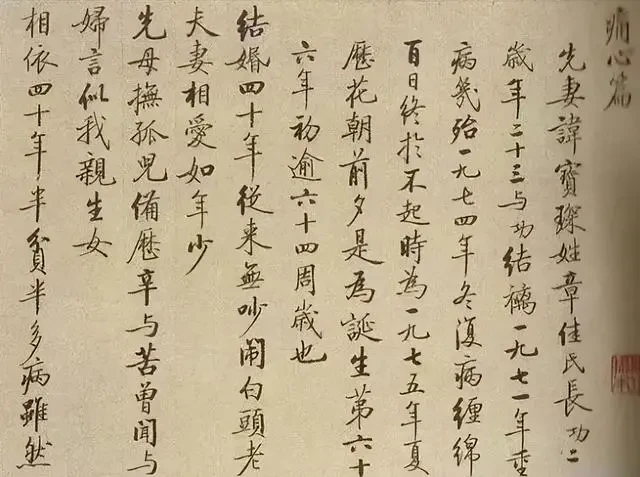 痛心篇
先妻諱寶琛姓章佳氏長功二
歲年二十三与功結褵一九七一年重
病幾殆一九七四年冬復病纏綿
百日終於不起時為一九七五年夏
歷花朝前夕是為誕生第六十
六年初逾六十四周歲也
結婚四十年從来無吵闹白頭老
夫妻相愛如年少
先母撫孤兒備歷辛与苦曾聞与
婦言似我親生女
相依四十年半貧半多病雖然